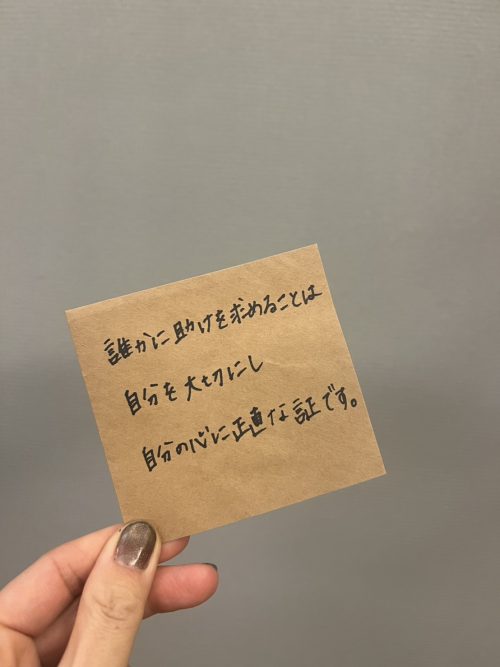 誰かに助けを求めることは
自分を大切にし
自分の心に正直な証です。